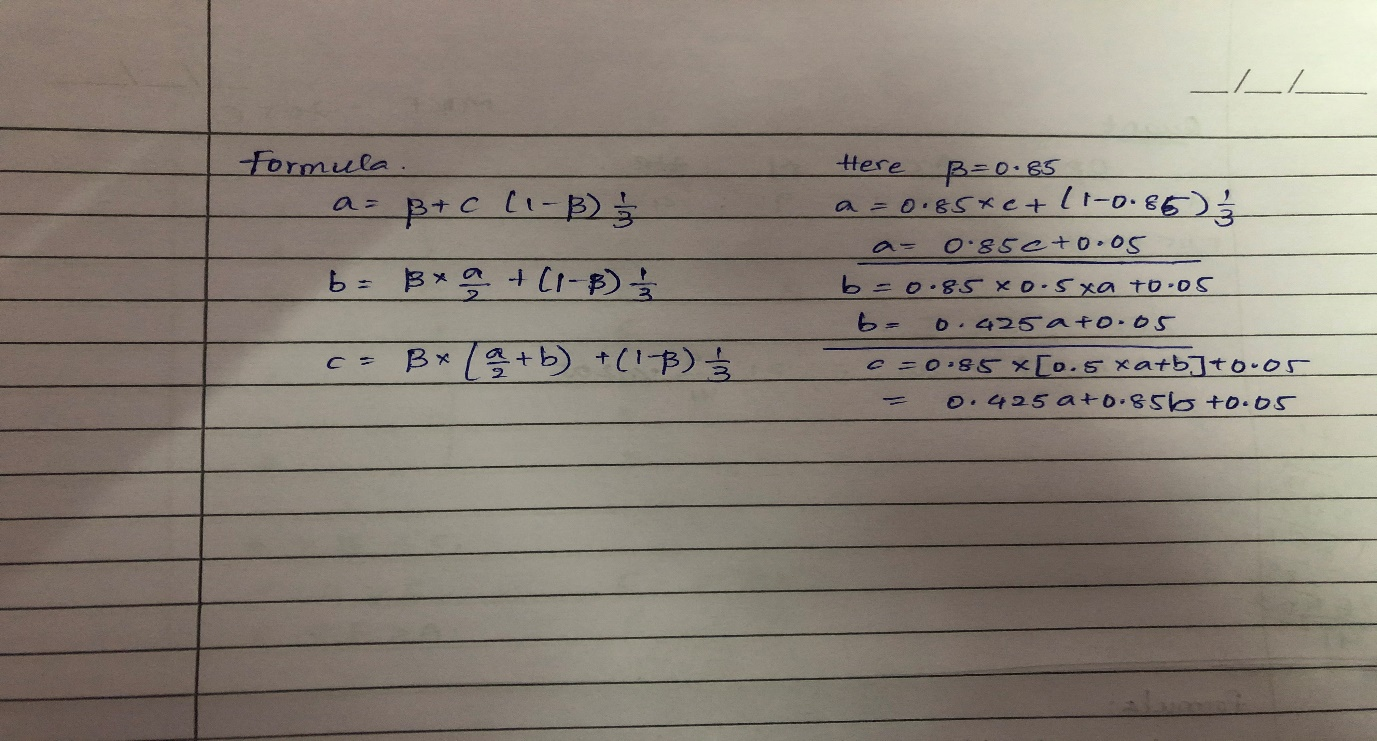 Formula.
a = β + c (1-β) 1/3
b = β × a/2 + (1-β) 1/3
c = β × (a/2 + b) + (1-β) 1/3
Here β = 0.85
a = 0.85 × c + (1-0.85) 1/3
a = 0.85c + 0.05
b = 0.85 × 0.5 × a + 0.05
b = 0.425a + 0.05
c = 0.85 × [0.5 × a + b] + 0.05
= 0.425a + 0.85b + 0.05